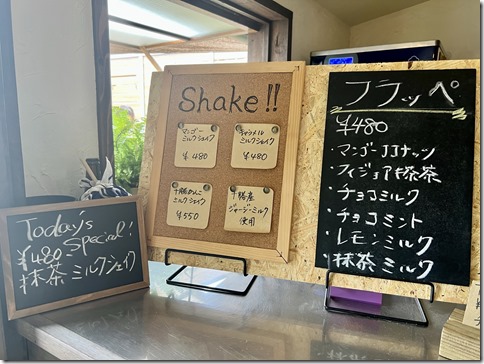 Today's
Special!
¥480
抹茶 ミルクシェイク
Shake!!
マンゴー
ミルクシェイク
¥480
キャラメル
ミルクシェイク
¥480
十勝あんこ
ミルクシェイク
¥550
十勝産
ジャージーミルク
使用
フラッペ
¥480
・マンゴーココナッツ
・フィジョア抹茶
・チョコミルク
・チョコミント
・レモンミルク
・抹茶ミルク